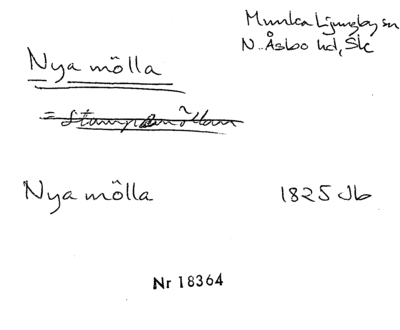 Munka Ljungby sn
N. Åsbo hd, Sk
Nya mölla
= Stampamöllan
Nya mölla 1825 Jb
Nr 18364